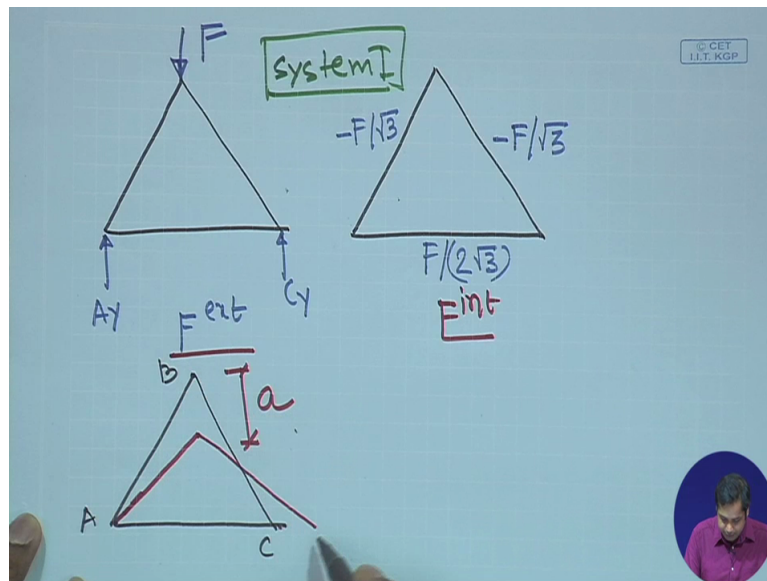 F
system I
© CET
I.I.T. KGP
-F/√3
-F/√3
F/(2√3)
Ay
Cy
F^ext
F^int
B
a
A
C